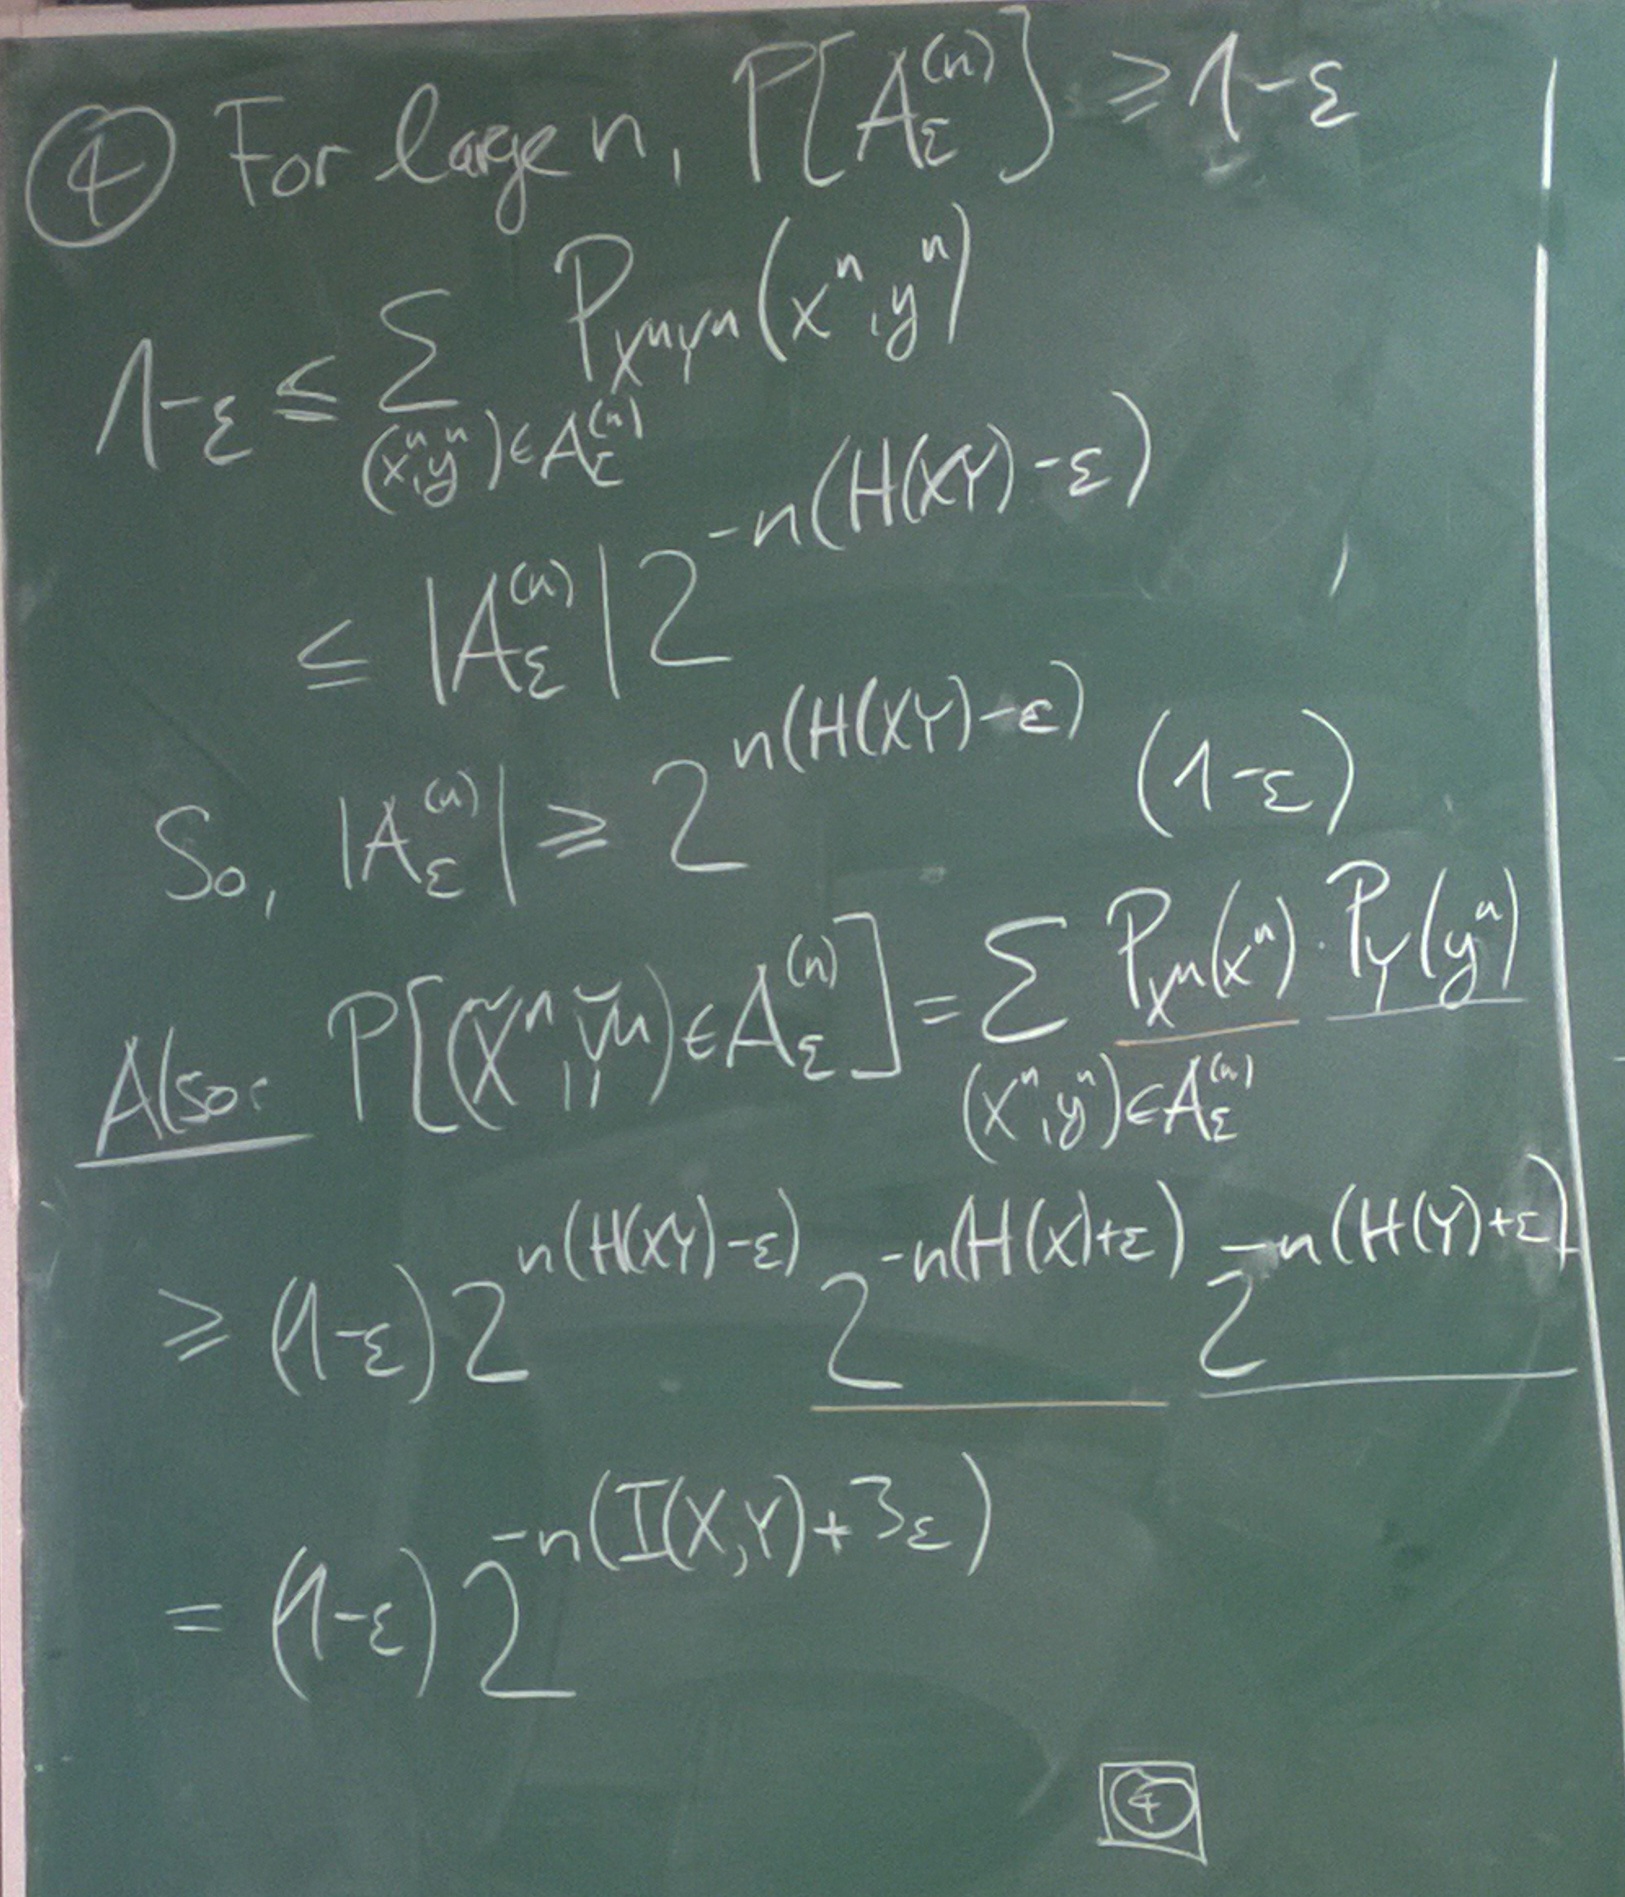 ④ For large n, P[A_ε^(n)] ≥ 1-ε
1-ε ≤ Σ_{(x^n,y^n)∈A_ε^(n)} P_{X^nY^n}(x^n,y^n)
≤ |A_ε^(n)| 2^{-n(H(XY)-ε)}
So, |A_ε^(n)| ≥ 2^{n(H(XY)-ε)} (1-ε)
Also: P[(X̃^n,Ỹ^n)∈A_ε^(n)] = Σ_{(x^n,y^n)∈A_ε^(n)} P_{X^n}(x^n) · P_Y(y^n)
≥ (1-ε) 2^{n(H(XY)-ε)} 2^{-n(H(X)+ε)} 2^{-n(H(Y)+ε)}
= (1-ε) 2^{-n(I(X;Y)+3ε)}
④